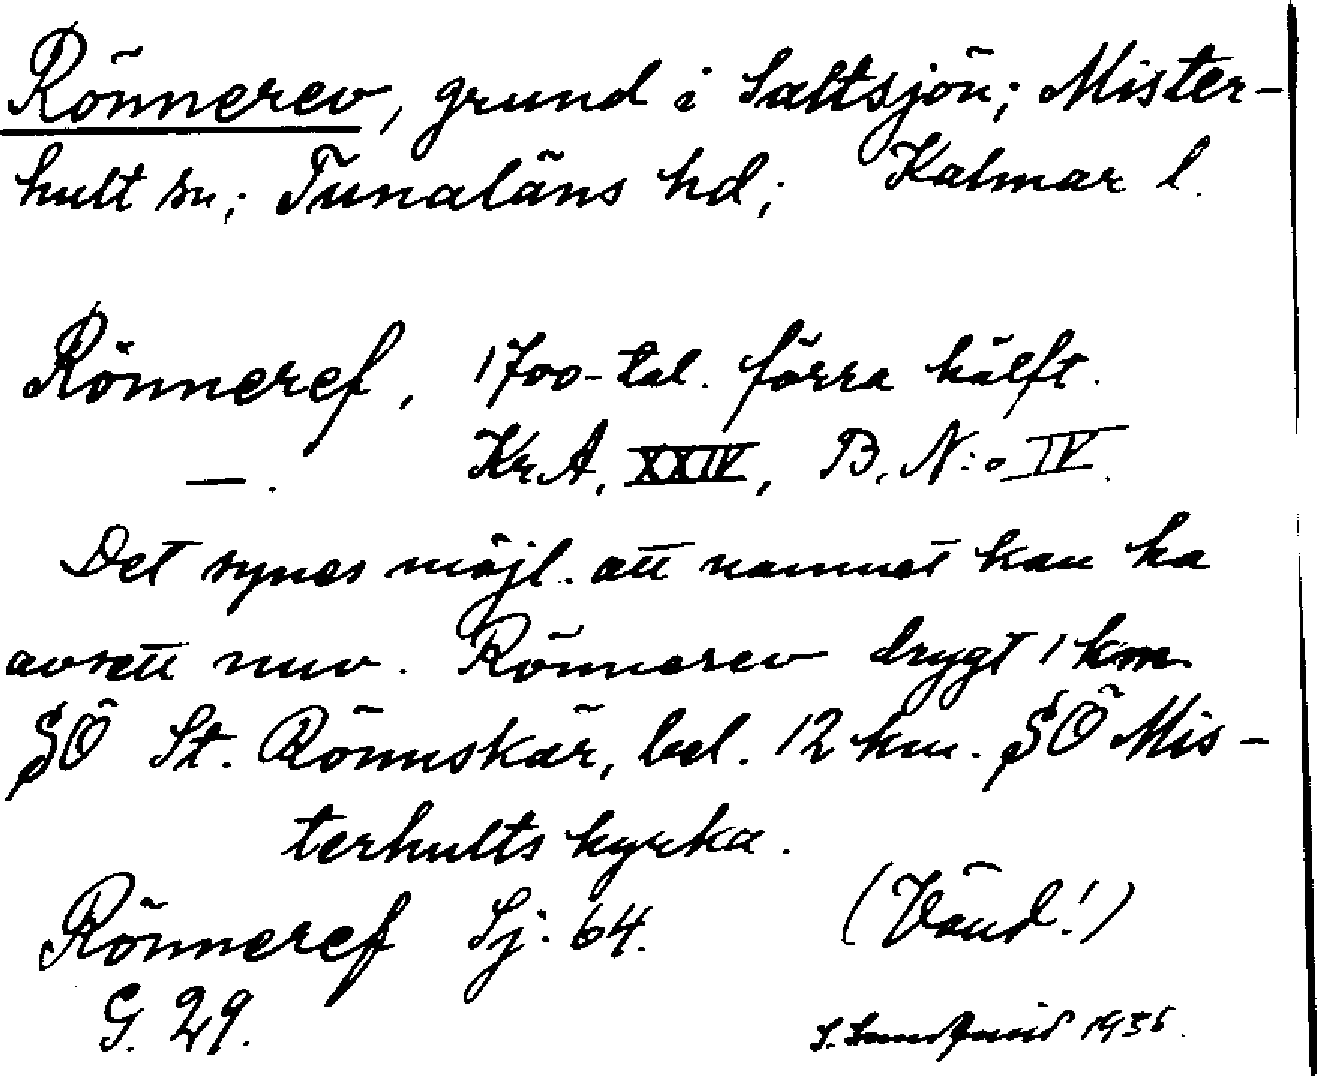 Rönnerev, grund i Saltsjön; Mister-
hult sn; Tunaläns hd; Kalmar l.
Rönneref, 1700-tal. förra hälft.
—. Kr.A. XXIV, B. N:o IV.
Det synes möjl. att namnet kan ha
avsett nuv. Rönnerev drygt 1 km
SÖ St. Rönnskär, bel. 12 km. SÖ Mis-
terhults kyrka.
Rönneref Sj: 64. (Vänd!)
G. 29.